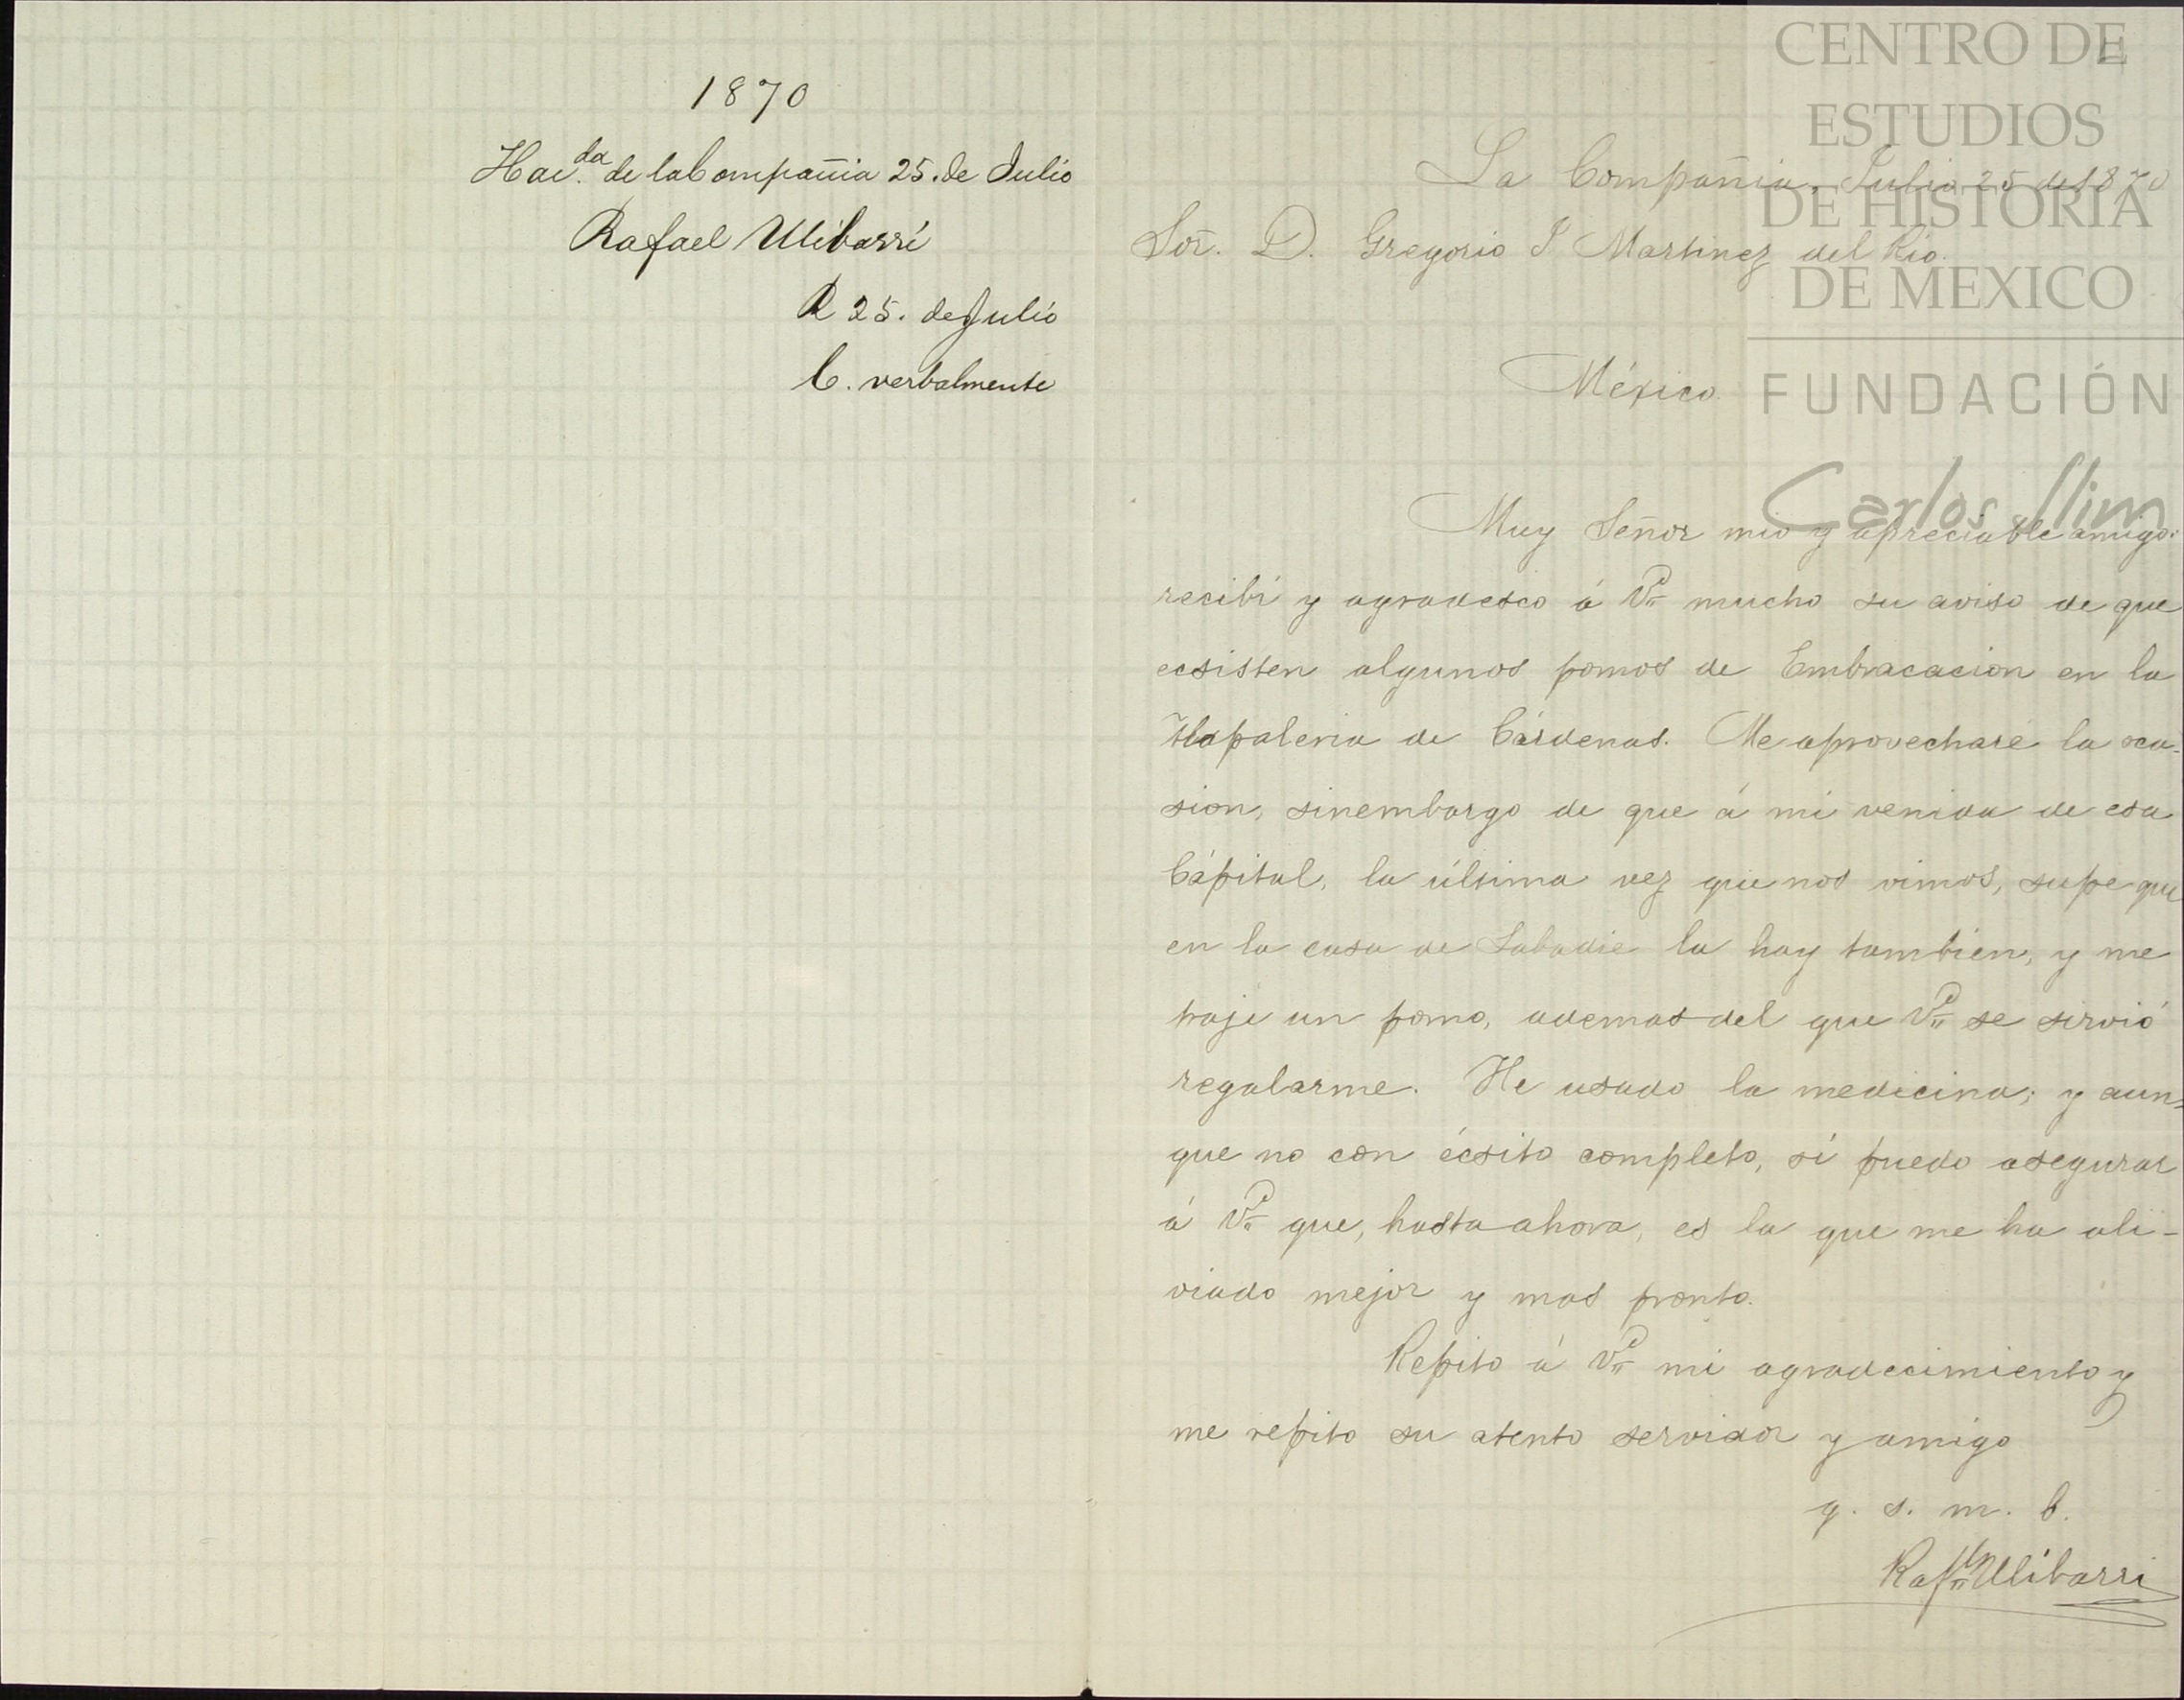 1870
Hac.da de la Compañia 25. de Julio
Rafael Ulibarri
R 25. de Julio
C. verbalmente
La Compañia, Julio 25 de 1870
Sor. D. Gregorio J Martinez del Rio.
México.
Muy Señor mio y apreciable amigo:
recibí y agradesco á Vd mucho su aviso de que
ecsisten algunos pomos de Embracacion en la
Tlapaleria de Cárdenas. Me aprovecharé la oca-
sion, sinembargo de que á mi venida de esa
Cápital, la última vez que nos vimos, supe que
en la casa de Labadie la hay tambien, y me
traje un pomo, ademas del que Vd se sirvió
regalarme. He usado la medicina; y aun-
que no con écsito completo, sí puedo asegurar
á Vd que, hasta ahora, es la que me ha ali-
viado mejor y mas pronto.
Repito á Vd mi agradecimiento y
me repito su atento servidor y amigo
q. s. m. b.
Rafl Ulibarri
CENTRO DE
ESTUDIOS
DE HISTORIA
DE MEXICO
FUNDACIÓN
Carlos Slim